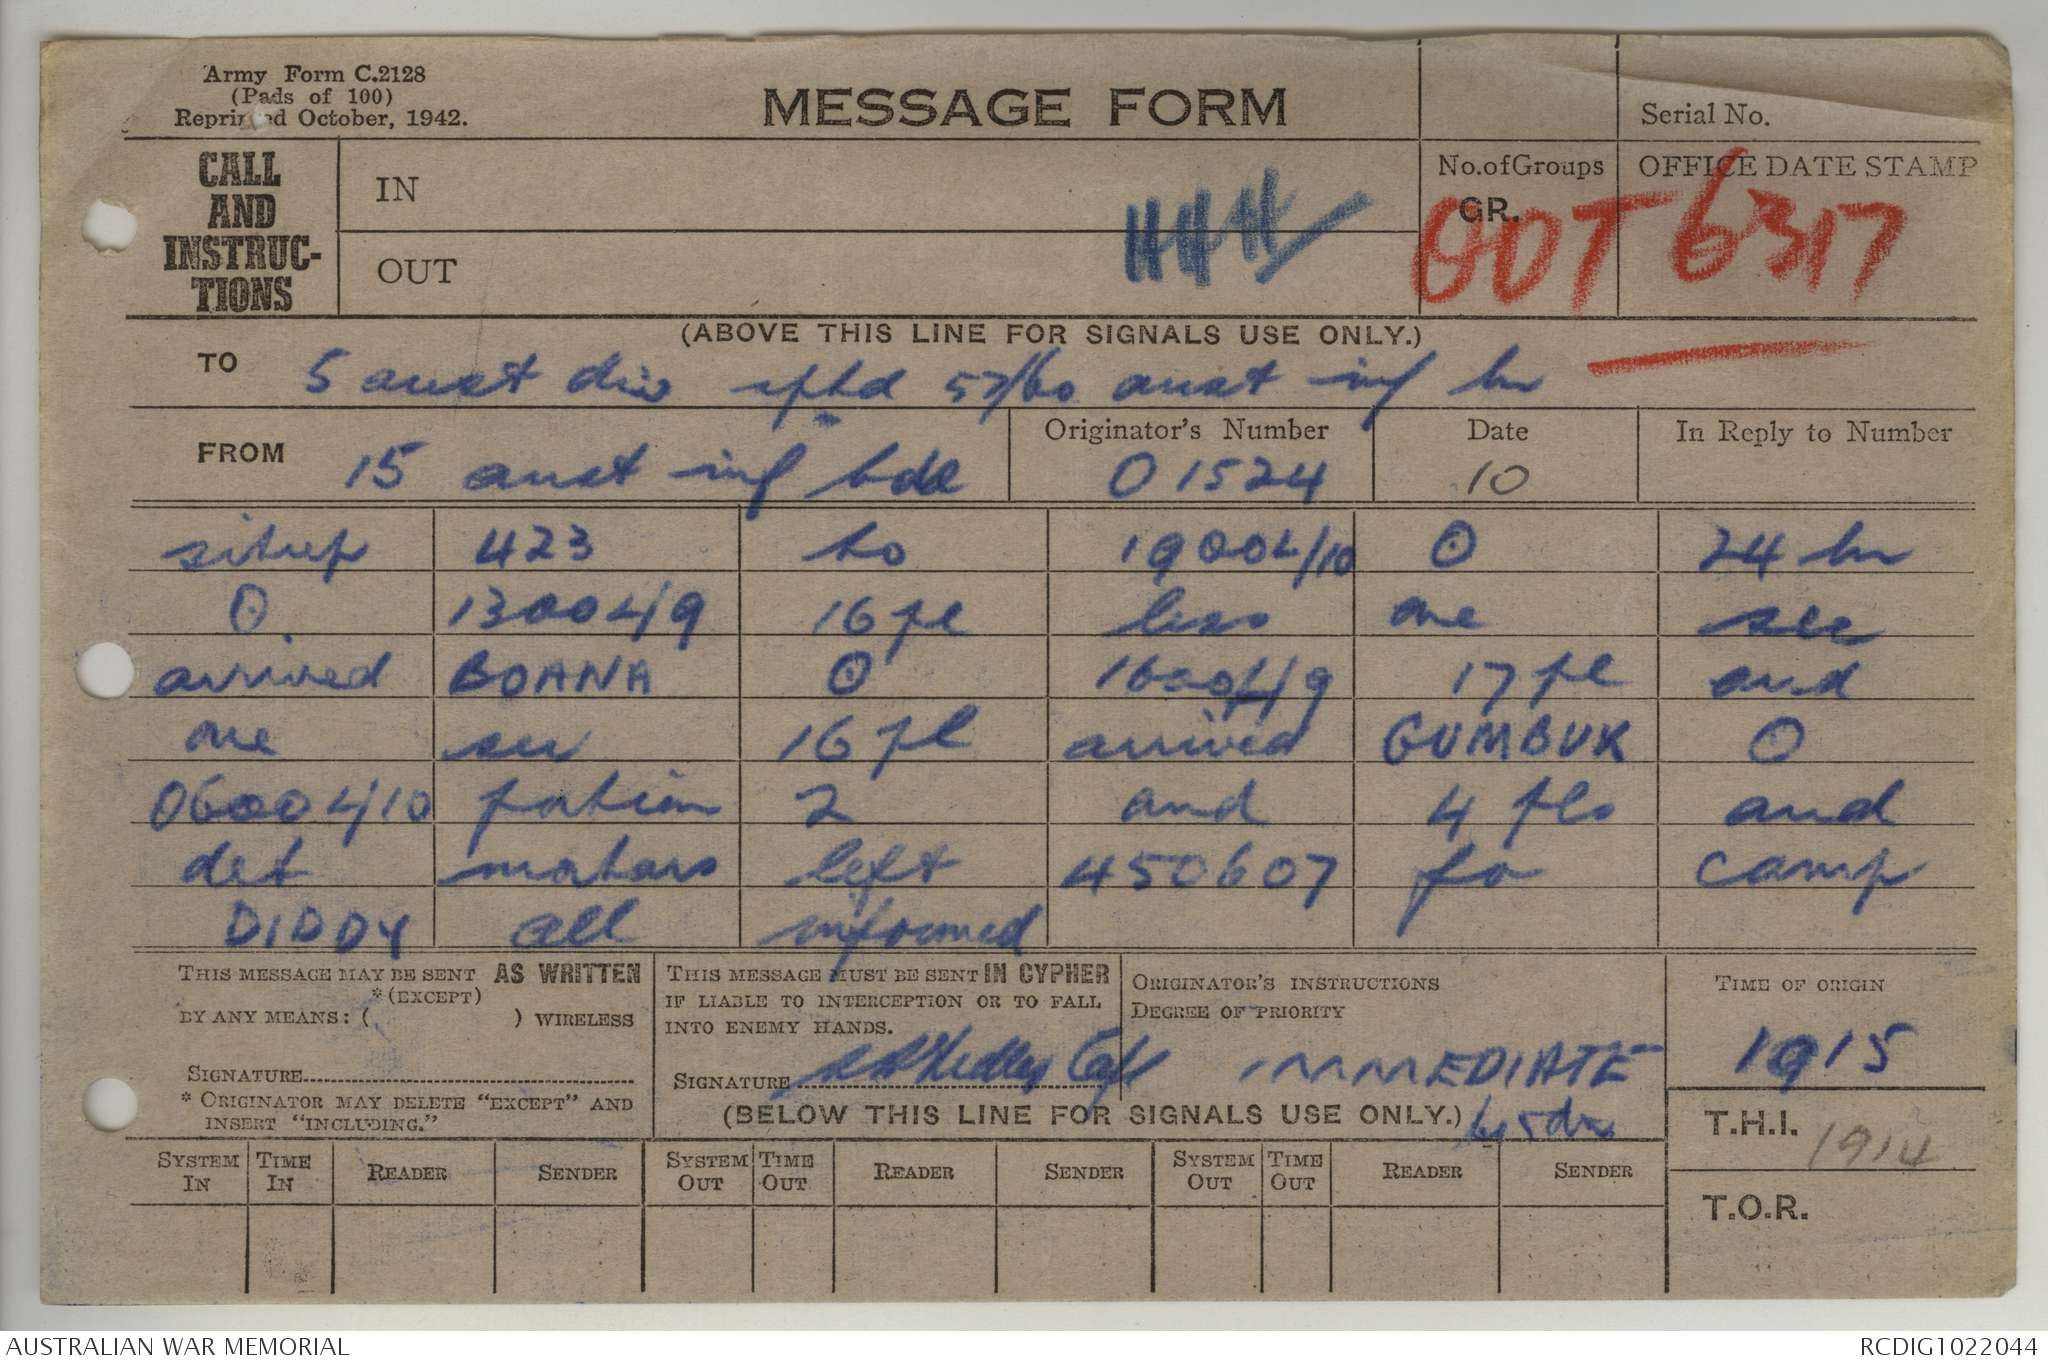 Army Form C.2128
(Pads of 100)
Reprinted October, 1942.
MESSAGE FORM
Serial No.
CALL AND INSTRUC-TIONS
IN
OUT
No. of Groups
GR.
OFFICE DATE STAMP
6317
(ABOVE THIS LINE FOR SIGNALS USE ONLY.)
TO 5 aust div rptd 57/60 aust inf bn
FROM 15 aust inf bde
Originator's Number O1524
Date 10
In Reply to Number
sitrep 423 to 1900L/10 O 24 hr
O 1300L/9 16 pl less one sec
arrived BOANA O 1600L/9 17 pl and
one sec 16 pl arrived GUMBUK O
0600L/10 2 and 4 pls and
det mortars left 450607 for camp
DIDDY all informed
THIS MESSAGE MAY BE SENT AS WRITTEN
*(EXCEPT)
BY ANY MEANS: ( ) WIRELESS
SIGNATURE
* ORIGINATOR MAY DELETE "EXCEPT" AND
INSERT "INCLUDING."
THIS MESSAGE MUST BE SENT IN CYPHER
IF LIABLE TO INTERCEPTION OR TO FALL
INTO ENEMY HANDS.
SIGNATURE Capt
ORIGINATOR'S INSTRUCTIONS
DEGREE OF PRIORITY
IMMEDIATE
to 5 div
TIME OF ORIGIN
1915
(BELOW THIS LINE FOR SIGNALS USE ONLY.)
T.H.I. 1914
T.O.R.
SYSTEM IN TIME IN READER SENDER SYSTEM OUT TIME OUT READER SENDER SYSTEM OUT TIME OUT READER SENDER
AUSTRALIAN WAR MEMORIAL
RCDIG1022044